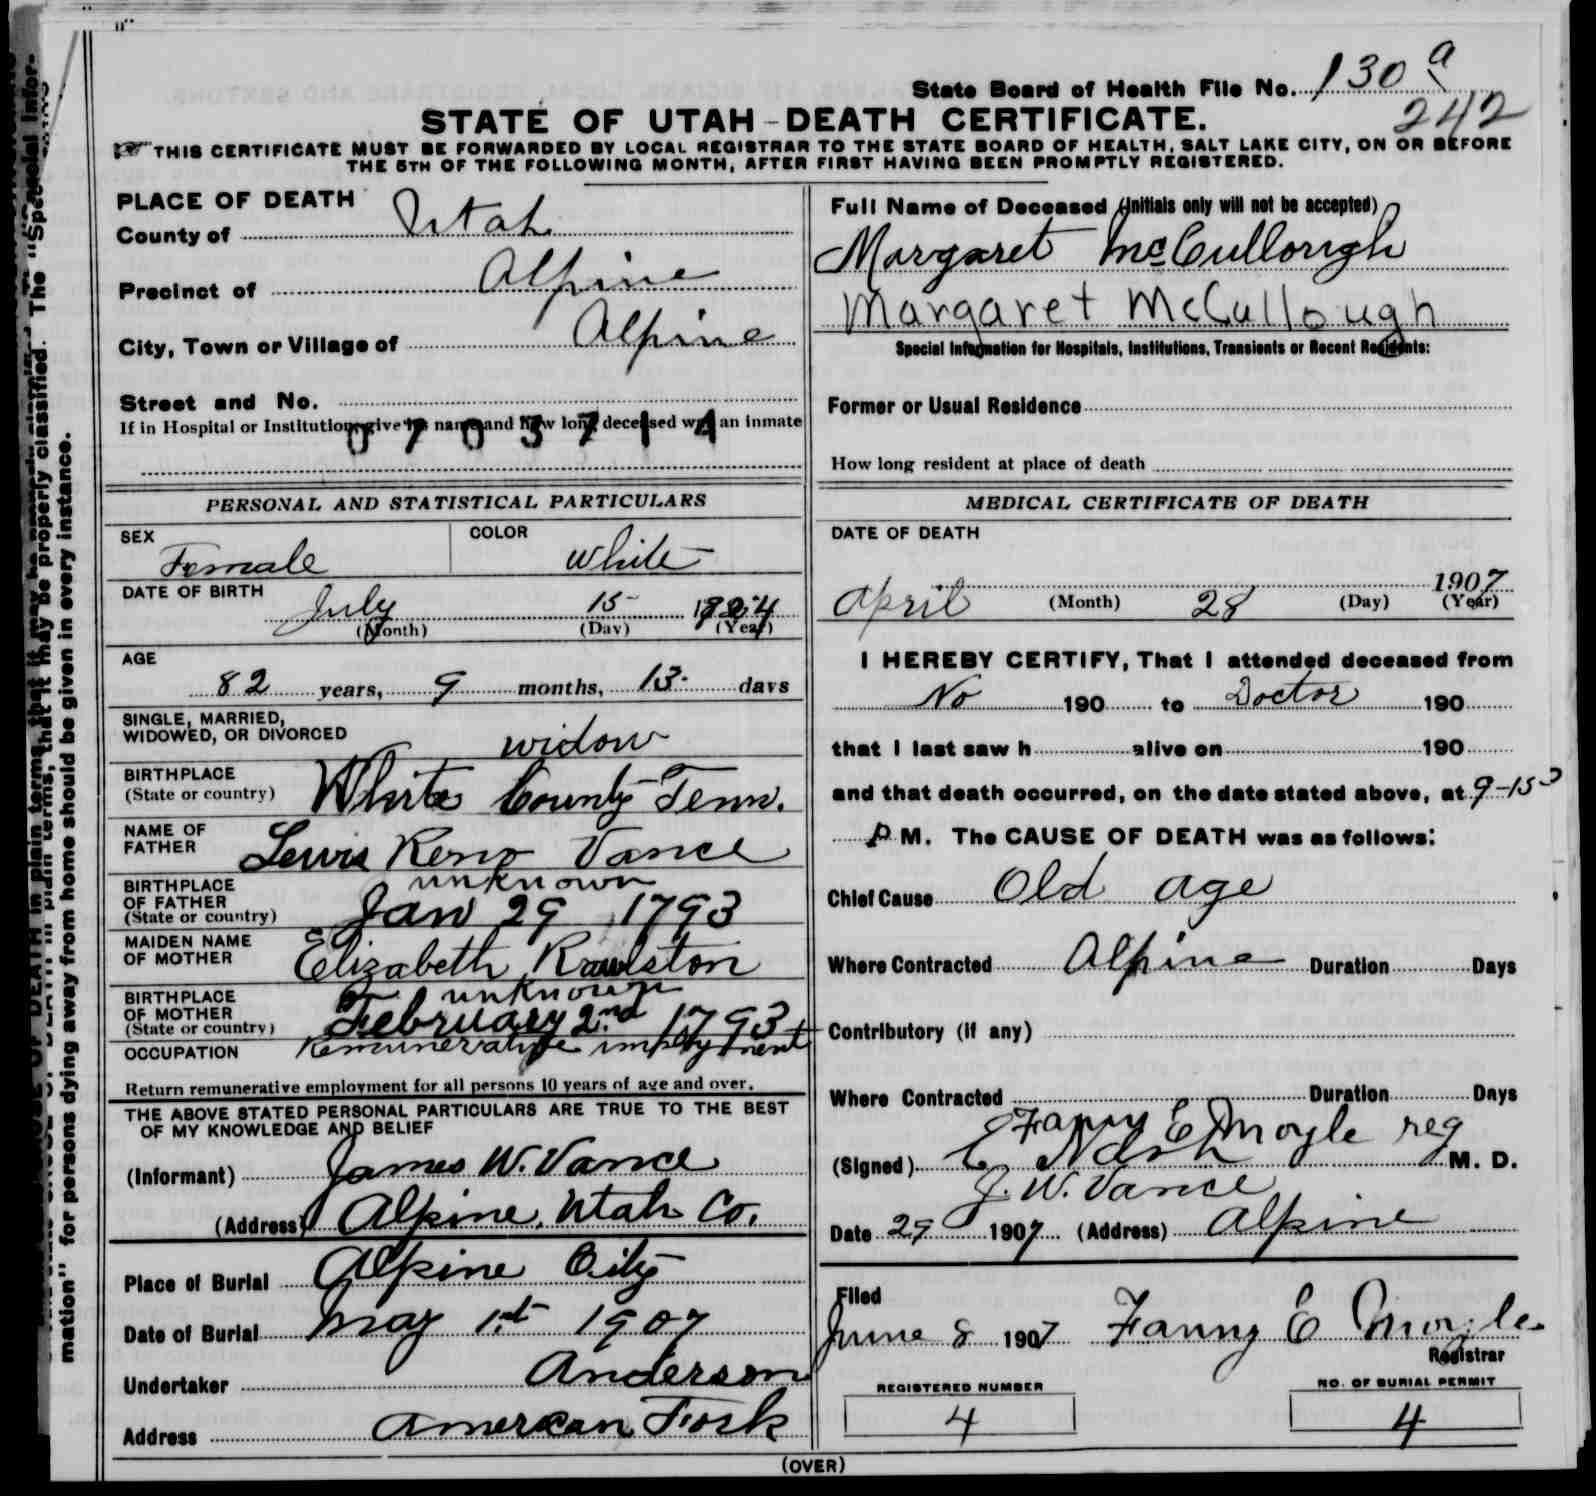 State Board of Health File No. 130 a
242
STATE OF UTAH - DEATH CERTIFICATE.
THIS CERTIFICATE MUST BE FORWARDED BY LOCAL REGISTRAR TO THE STATE BOARD OF HEALTH, SALT LAKE CITY, ON OR BEFORE
THE 5TH OF THE FOLLOWING MONTH, AFTER FIRST HAVING BEEN PROMPTLY REGISTERED.
PLACE OF DEATH
County of Utah
Precinct of Alpine
City, Town or Village of Alpine
Street and No.
If in Hospital or Institution, give its name and how long deceased was an inmate
0703714
Full Name of Deceased (Initials only will not be accepted)
Margaret McCullough
Margaret McCullough
Special Information for Hospitals, Institutions, Transients or Recent Residents:
Former or Usual Residence
How long resident at place of death
PERSONAL AND STATISTICAL PARTICULARS
SEX Female COLOR White
DATE OF BIRTH
July 15 1824
(Month) (Day) (Year)
AGE
82 years, 9 months, 13 days
SINGLE, MARRIED,
WIDOWED, OR DIVORCED widow
BIRTHPLACE
(State or country) White County Tenn.
NAME OF
FATHER Lewis Reno Vance
BIRTHPLACE unknown
OF FATHER
(State or country) Jan 29 1793
MAIDEN NAME
OF MOTHER Elizabeth Rawlston
BIRTHPLACE unknown
OF MOTHER
(State or country) February 2nd 1793
OCCUPATION Remunerative imployment
Return remunerative employment for all persons 10 years of age and over.
THE ABOVE STATED PERSONAL PARTICULARS ARE TRUE TO THE BEST
OF MY KNOWLEDGE AND BELIEF
(Informant) James W. Vance
(Address) Alpine, Utah Co.
Place of Burial Alpine City
Date of Burial May 1st 1907
Undertaker Anderson
Address American Fork
MEDICAL CERTIFICATE OF DEATH
DATE OF DEATH
1907
April (Month) 28 (Day) (Year)
I HEREBY CERTIFY, That I attended deceased from
No 190 to Doctor 190
that I last saw h alive on 190
and that death occurred, on the date stated above, at 9-15
P M. The CAUSE OF DEATH was as follows:
Chief Cause Old age
Where Contracted Alpine Duration Days
Contributory (if any)
Where Contracted Duration Days
Fanny E Moyle reg
(Signed) C Nash M. D.
J. W. Vance
Date 29 1907 (Address) Alpine
Filed
June 8 1907 Fanny E Moyle
Registrar
REGISTERED NUMBER
4
NO. OF BURIAL PERMIT
4
(OVER)
mation" for persons dying away from home should be given in every instance.